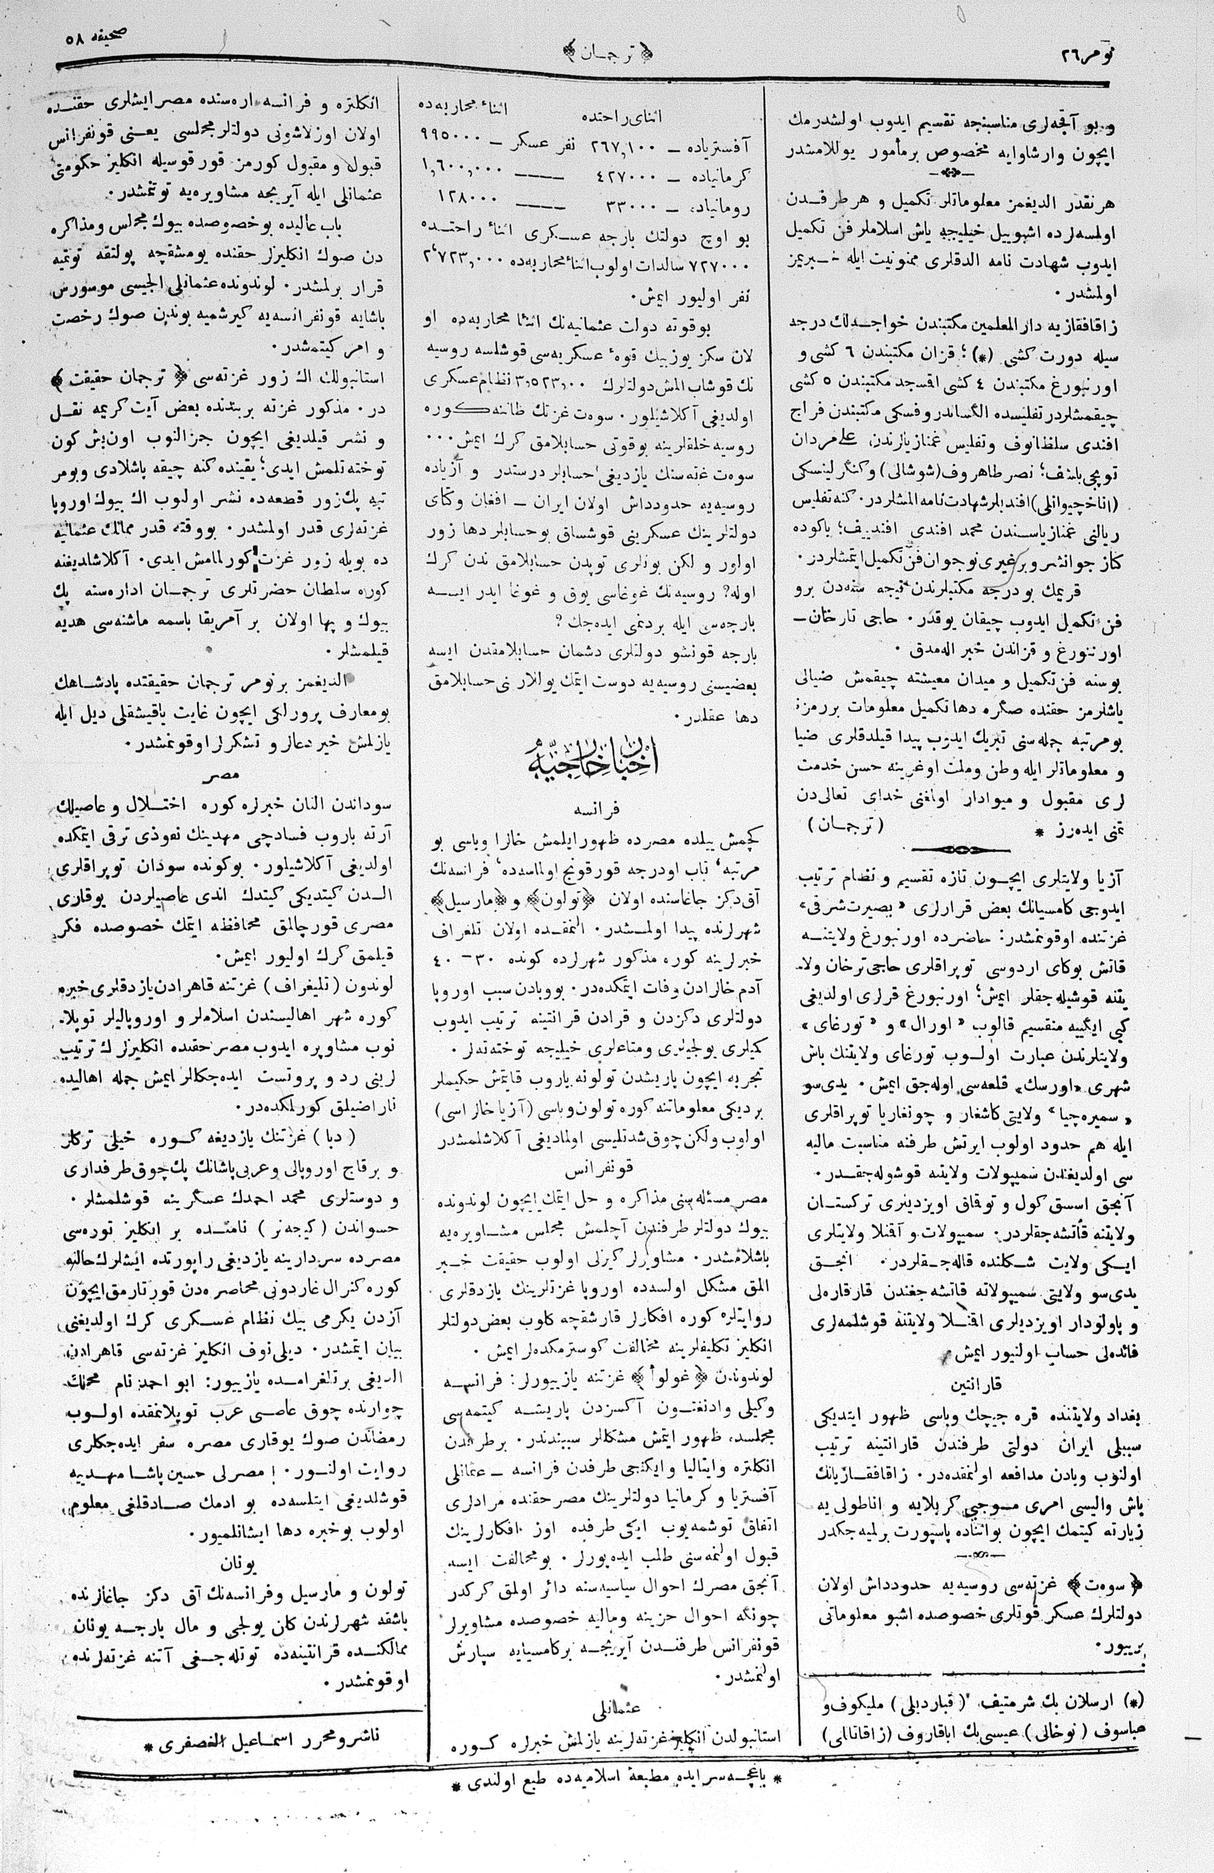 نومر ٢٦
﴿ ترجمان ﴾
صحیفه ٥٨
و بو آقچه‌لری مناسبنجه تقسیم ایدوب اولشدرمك
ایچون وارشاوایه مخصوص برمأمور یوللامشدر
هرنقدر الدیغمز معلوماتلر تکمیل و هر طرفدن
اولمسه‌لرده اشبوییل خیلیجه یاش اسلاملر فن تکمیل
ایدوب شهادت نامه الدقلری ممنونیت ایله خبریمز
اولمشدر .
زاقافقازیه دار المعلمین مکتبندن خواجه‌لك درجه
سیله دورت کشی (*)؛ قزان مکتبندن ٦ کشی و
اورنبورغ مکتبندن ٤ کشی اقمسجد مکتبندن ٥ کشی
چیقمشلردر تفلیسده الکساندروفسکی مکتبندن فراج
افندی سلطانوف وتفلیس غمنازیازندن، علی مردان
توپچی باشف؛ نصر طاهروف (شوشالی) و کنکرلینسکی
(ناخچیوانلی) افندیلر شهادت نامه المشلردر . کنه تفلیس
ریالنی غمنازیاسندن محمد افندی افندییف؛ باکوده
کناز جوانشر و بر غیری نوجوان فن تکمیل ایتمشلردر .
قریمك بو درجه مکتبلرندن نیچه سنه‌دن برو
فن تکمیل ایدوب چیقان یوقدر . حاجی تارخان ـ
اورنبورغ و قزاندن خبر اله‌مدق .
بوسنه فن تکمیل و میدان معیشته چیقمش ضیالی
یاشلرمز حقنده صکره دها تکمیل معلومات بررمز؛
بومرتبه جمله‌سنی تبریك ایدوب پیدا قیلدقلری ضیا
و معلوماتلر ایله وطن وملت اوغرینه حسن خدمت
لری مقبول و میوادار اولغنی خدای تعالی‌دن
تمنی ایده‌رز * (ترجمان)
آزیا ولایتلری ایچون تازه تقسیم و نظام ترتیب
ایدوجی کامسیانك بعض قرارلری «بصیرت شرقی»
غزتنده اوقونمشدر: حاضرده اورنبورغ ولایتنه
قاتش بوکای اردوسی توپراقلری حاجی ترخان ولا
یتنه قوشیله‌جقلر ایمش؛ اورنبورغ قرلری اولدیغی
کبی ایکییه منقسم قالوب «اورال» و «تورغای»
ولایتلرندن عبارت اولوب تورغای ولایتنك باش
شهری «اورسك» قلعه‌سی اوله‌جق ایمش . یدی سو
«سمیره‌چیا» ولایتی کاشغار و چونغاریا توپراقلری
ایله هم حدود اولوب ایرتش طرفنه مناسبت مالیه
سی اولدیغندن سمیپولات ولایتنه قوشوله‌جقدر .
آنجق اسسق کول و توقاق اویزدلری ترکستان
ولایتنه قاتشه‌جقلردر . سمیپولات و آقملا ولایتلری
ایکی ولایت شکلنده قاله‌جقلردر . انجق
یدی سو ولایتی سمیپولاته قاتشه‌جغندن قارقاره‌لی
و پاولودار اویزدلری اقملا ولایتنه قوشلمه‌لری
فائده‌لی حساب اولنیور ایمش
قارانتین
بغداد ولایتنده قره چیچك وباسی ظهور ایتدیکی
سببلی ایران دولتی طرفندن قارانتینه ترتیب
اولنوب وبادن مدافعه اولنمقده‌در . زاقافقازیانك
باش والیسی امری موجبی کربلایه و اناطولی یه
زیارته کیتمك ایچون بو اثناده پاسپورت برلمیه‌جکدر
﴿سوه‌ت﴾ غزته‌سی روسیه‌یه حدودداش اولان
دولتلرك عسکر قوتلری خصوصده اشبو معلوماتی
برییور .
(*) ارسلان بك شرمتیف (قباردیلی) ملیکوف و
عباسوف (نوخالی) عیسی بك اباقاروف (زاقاتالی)
اثنای راحتده اثناء محاربه‌ده
آفستریاده ـ ٢٦٧,١٠٠ نفر عسکر ـ ٩٩٥٠٠٠
کرمانیاده ـ ٤٢٧٠٠٠ ـــ ١,٦٠٠,٠٠٠
رومانیاده ـ ٣٣٠٠٠ ـــ ١٢٨٠٠٠
بو اوچ دولتك بارجه عسکری اثناء راحتده
٧٢٧٠٠٠ سالدات اولوب اثناء محاربه‌ده ٢,٧٢٣,٠٠٠
نفر اولیور ایمش .
بوقوته دولت عثمانیه‌نك اثناء محاربه‌ده او
لان سکز یوز بیك قوهٔ عسکریه‌سی قوشلسه روسیه
نك قوشاب المش دولتلرك ٣,٥٢٣,٠٠ نظام عسکری
اولدیغی آکلاشیلور . سوه‌ت غزتنك ظاننه کوره
روسیه خلقلرینه بوقوتی حسابلامق کرك ایمش ...
سوه‌ت غزته‌سنك یازدیغی حسابلر درستدر و آزیاده
روسیه‌یه حدودداش اولان ایران ـ افغان وکتای
دولتلرینك عسکرینی قوشساق بوحسابلر دها زور
اولور و لکن بونلری توپدن حسابلامق ندن کرك
اوله؟ روسیه‌نك غوغاسی یوق و غوغا ایدر ایسه
بارجه‌سی ایله بردنمی ایده‌جك؟
بارجه قونشو دولتلری دشمان حسابلامقدن ایسه
بعضیسنی روسیه‌یه دوست ایتمك یوللارنی حسابلامق
دها عقلدر .
اخبار خارجیه
فرانسه
کچمش ییلده مصرده ظهور ایلمش خالرا وباسی بو
مرتبه، تاب اودرجه قورقونج اولماسه‌ده، فرانسه‌نك
آق‌دکز جاغاسنده اولان ﴿تولون﴾ و﴿مارسیل﴾
شهرلرنده پیدا اولمشدر . النمقده اولان تلغراف
خبرلرینه کوره مذکور شهرلرده کونده ٣٠-٤٠
آدم خالرادن وفات ایتمکده‌در . بووبادن سبب اوروپا
دولتلری دکزدن و قرادن قرانتینه ترتیب ایدوب
کمیلری یولجیلری و متاعلری خیلیجه توخته‌تدلر .
تجربه ایچون پاریشدن تولونه باروب قایتمش حکیملر
بردیکی معلوماتنه کوره تولون وباسی (آزیا خالراسی)
اولوب ولکن چوق شدتلیسی اولمادیغی آکلاشلمشدر
قونفرانس
مصر مسئله‌سنی مذاکره و حل ایتمك ایچون لوندونده
بیوك دولتلر طرفندن آچلمش مجلس مشاویره‌یه
باشلامشدر . مشاورلر کیزلی اولوب حقیقت خبر
المق مشکل اولسه‌ده اوروپا غزتلرینك یازدقلری
روایتلره کوره افکارلر قارشقچه کلوب بعض دولتلر
انکلیز تکلیفلرینه مخالفت کوسترمکده‌لر ایمش .
لوندوندن ﴿غولوا﴾ غزتنه یازییورلر: فرانسه
وکیلی وادنغتون آکسزدن پاریشه کیتمه‌سی
مجلسده ظهور ایتمش مشکللر سببندندر . برطرفدن
انکلتره وایتالیا و ایکنجی طرفدن فرانسه ـ عثمانلی
آفستریا و کرمانیا دولتلرینك مصر حقنده مرادلری
اتفاق توشمه‌یوب ایکی طرفده اوز افکارلرینك
قبول اولنمه‌سنی طلب ایده‌یورلر . بومخالفت ایسه
آنجق مصرك احوال سیاسیه‌سنه دائر اولمق کرکدر
چونکه احوال حزینه و مالیه خصوصده مشاویرلر
قونفرانس طرفندن آیریجه برکامسیایه سپارش
اولنمشدر .
عثمانلی
استانبولدن انکلیز غزته‌لرینه یازلمش خبرلره کوره
انکلتره و فرانسه اره‌سنده مصر ایشلری حقنده
اولان اوزلاشونی دولتلر مجلسی یعنی قونفرانس
قبول و مقبول کورمز قورقوسیله انکلیز حکومتی
عثمانلی ایله آیریجه مشاویره‌یه توتنمشدر .
باب عالیده بوخصوصده بیوك مجلس و مذاکره
دن صوك انکلیزلر حقنده یومشقچه پولتقه توتمیه
قرار برلمشدر . لوندونده عثمانلی الجیسی موسورس
باشایه قونفرانسه‌یه کیرشمیه بوندن صوك رخصت
و امر کیتمشدر .
استانبولك اك زور غزته‌سی ﴿ترجمان حقیقت﴾
در . مذکور غزته بربندنده بعض آیت کریمه نقل
و نشر قیلدیغی ایچون جزالنوب اون‌بش کون
توخته‌تلمش ایدی؛ یقینده کنه چیقه باشلادی وبومر
تبه پك زور قطعه‌ده نشر اولوب اك بیوك اوروپا
غزته‌لری قدر اولمشدر . بووقته قدر ممالك عثمانیه
ده بویله زور غزت کورلمامش ایدی . آکلاشلدیغنه
کوره سلطان حضرتلری ترجمان اداره‌سنه پك
بیوك و پها اولان بر آمریقا باسمه ماشنه‌سی هدیه
قیلمشلر .
الدیغمز برنومر ترجمان حقیقتده پادشاهك
بومعارف پرورلکی ایچون غایت یاقیشقلی دیل ایله
یازلمش خیر دعالر و تشکرلر اوقونمشدر .
مصر
سوداندن النان خبرلره کوره اختلال و عاصیلك
آرته باروب فسادچی مهدینك نفوذی ترقی ایتمکده
اولدیغی آکلاشیلور . بوکونده سودان توپراقلری
الدن کیتدیکی کیتدك اندی عاصیلردن یوقاری
مصری قورچالمق محافظه ایتمك خصوصده فکر
قیلمق کرك اولیور ایمش .
لوندون (تلیغراف) غزتنه قاهرادن یازدقلری خبره
کوره شهر اهالیسندن اسلاملر و اوروپالیلر توپلا
نوب مشاویره ایدوب مصر حقنده انکلیزلرك ترتیب
لرینی رد و پروتست ایده‌جکلر ایمش جمله اهالیده
ناراضیلق کورلمکده‌در .
(دبا) غزتنك یازدیغنه کوره خیلی ترکلر
و برقاچ اوروپالی وعربی پاشانك پك چوق طرفداری
و دوستلری محمد احمدك عسکرینه قوشلمشلر .
حسواندن (کیچه‌نر) نامنده بر انکلیز توره‌سی
مصرده سردارینه یازدیغی راپورتده ایشلرك حالنه
کوره کنرال غاردونی محاصره‌دن قورتارمق ایچون
آزدن یکرمی بیك نظام عسکری کرك اولدیغنی
بیان ایتمشدر . دیلی‌نوف انکلیز غزته‌سی قاهرادن
الدیغی برتلغرامده یازییور: ابو احمد نام محلك
جوارنده چوق عاصی عرب توپلانمقده اولوب
رمضاندن صوك یوقاری مصره سفر ایده‌جکلری
روایت اولنور . مصرلی حسین پاشا مهدییه
قوشلدیغی ایتلسه‌ده بو ادمك صادقلغی معلوم
اولوب بوخبره دها ایشانلمیور .
یونان
تولون و مارسیل وفرانسه‌نك آق دکز جاغالرنده
باشقه شهرلرندن کلن یولجی و مال بارجه یونان
ممالکنده قرانتینه‌ده توتله‌جغی آتنه غزته‌لرنده
اوقونمشدر .
ناشر و محرر اسماعیل الغصفری *
* باغچه‌سرایده مطبعهٔ اسلامیه‌ده طبع اولندی *